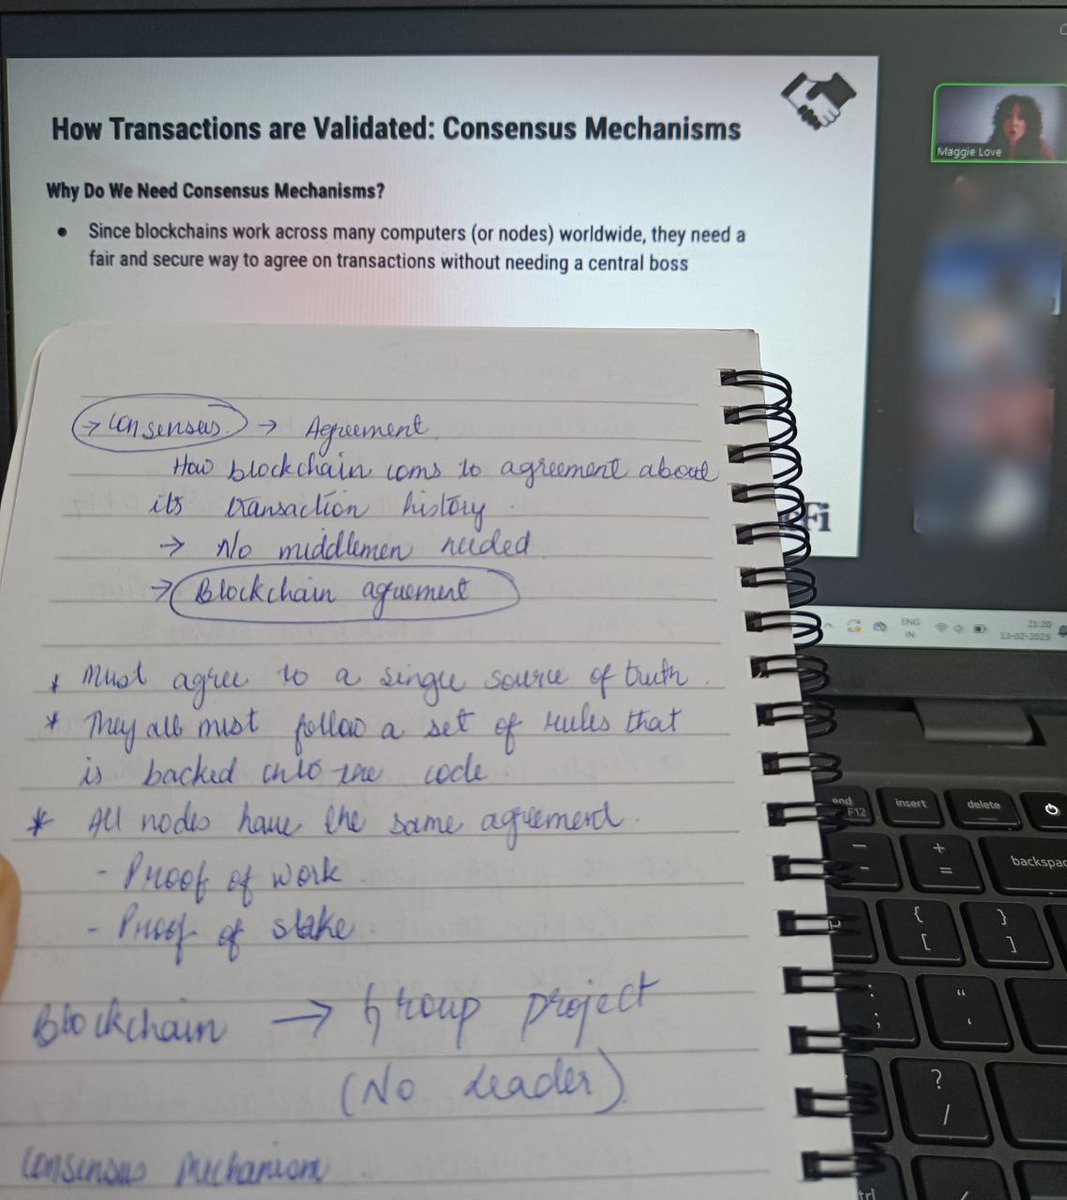 How Transactions are Validated: Consensus Mechanisms
Why Do We Need Consensus Mechanisms?
• Since blockchains work across many computers (or nodes) worldwide, they need a
fair and secure way to agree on transactions without needing a central boss
Maggie Love
Fi
→ Consensus → Agreement
How blockchain coms to agreement about
its transaction history.
→ No middlemen needed
→ Blockchain agreement
* Must agree to a single source of truth.
* They all must follow a set of rules that
is backed into the code
* All nodes have the same agreement.
- Proof of work.
- Proof of stake.
Blockchain → Group project
(No Leader)
Consensus Mechanism
ENG
IN
21:20
13-02-2025
end
F12
insert
delete
backspac
- _
+ =
{ [
} ]
: ;
“ ‘
? /
ctrl